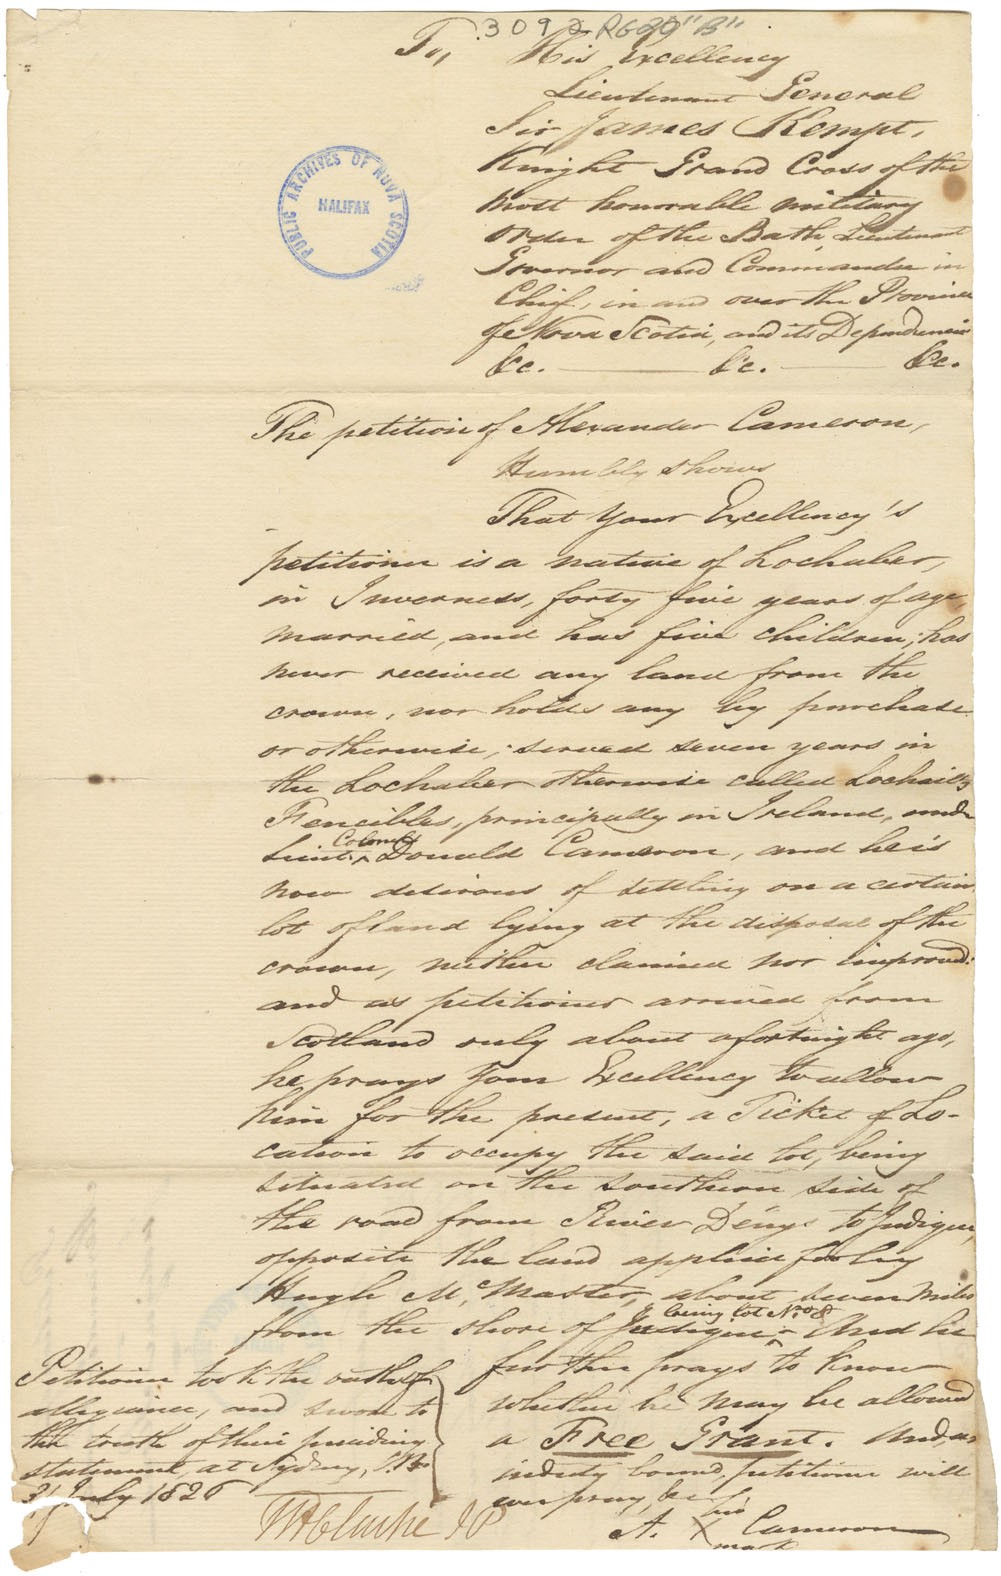 3092 RG20 "B"
To, His Excellency
Lieutenant General
Sir James Kempt,
Knight Grand Cross of the
most honorable military
order of the Bath, Lieutenant
Governor and Commander in
Chief, in and over the Province
of Nova Scotia, and its Dependencies
&c. &c. &c.
PUBLIC ARCHIVES OF NOVA SCOTIA
HALIFAX
The petition of Alexander Cameron,
Humbly shows
That Your Excellency's
petitioner is a native of Lochaber,
in Inverness, forty five years of age,
married, and has five children; has
never received any land from the
crown, nor holds any by purchase
or otherwise; served seven years in
the Lochaber otherwise called Locheill's
Fencibles, principally in Ireland, under
Lieut. ^ Colonel Donald Cameron, and he is
now desirous of settling on a certain
lot of land lying at the disposal of the
crown, neither claimed nor improved:
and as petitioner arrived from
Scotland only about a fortnight ago,
he prays Your Excellency to allow
him for the present, a Ticket of Lo-
cation to occupy the said lot, being
situated on the southern side of
the road from River Denys to Judique,
opposite the land applied for by
Hugh McMaster, about seven miles
from the shore of Judique ^ being lot No. 8 - And he
further prays to know
whether he may be allowed
a Free Grant. And as
in duty bound, petitioner will
ever pray, &c.
his
A. X Cameron
mark
Petitioner took the oath of
allegiance, and swore to
the truth of their preceding
statement, at Sydney,
31 July 1826
JP